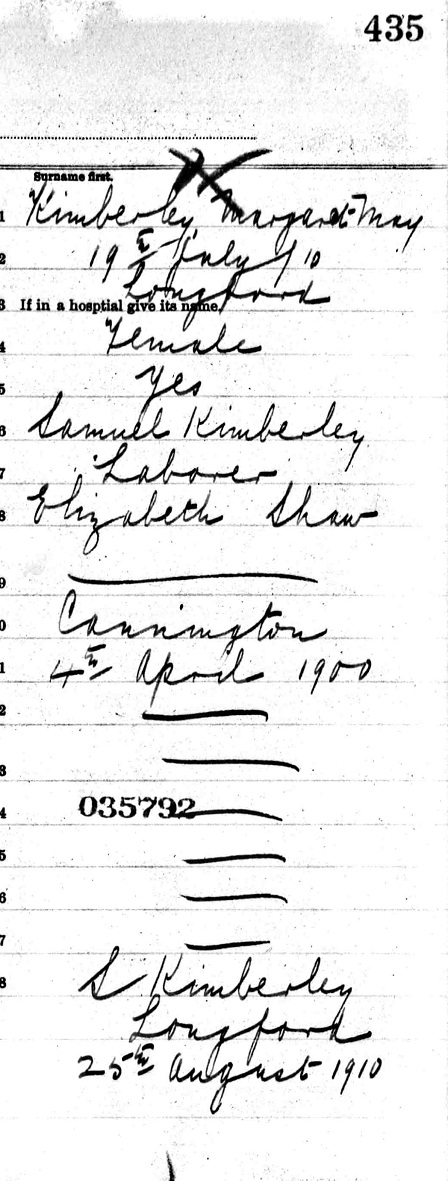 435
Surname first.
1 Kimberley Margaret May
2 19th July /10
Longford
3 If in a hosptial give its name,
4 Female
5 Yes
6 Samuel Kimberley
7 Laborer
8 Elizabeth Shaw
9
0 Cannington
1 4th April 1900
2
3
4 035792
5
6
7
8 S Kimberley
Longford
25th August 1910